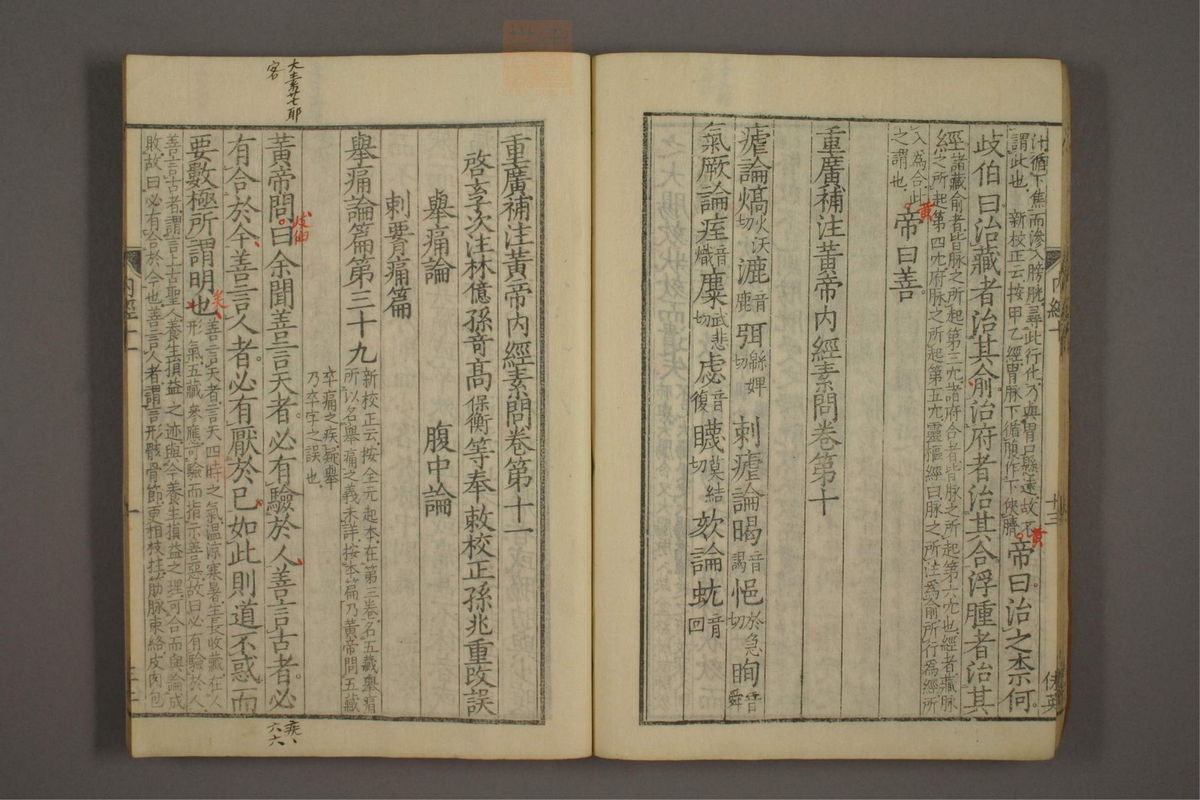 汁循下焦而滲入膀胱尋此行化乃與胃口懸遠故不
謂此也新校正云按甲乙經胃脉下循腹作下俠臍帝曰治之柰何
歧伯曰治藏者治其俞治府者治其合浮腫者治其
經諸藏俞者皆脉之所起第三穴諸府合者皆脉之所起第六穴也經者藏脉
之所起第四穴府脉之所起第五穴靈樞經曰脉之所注爲俞所行爲經所
入爲合此
之謂也帝曰善
重廣補注黃帝內經素問卷第十
瘧論熇火沃切漉音鹿弭緜婢切刺瘧論暍音謁悒於急切眴音舜
氣厥論痓音熾麋武悲切虙音復䁾莫結切欬論蚘音回
內經十
廿三
重廣補注黃帝內經素問卷第十一
啓玄子次注林億孫竒高保衡等奉敕校正孫兆重改誤
舉痛論
腹中論
刺腰痛篇
舉痛論篇第三十九新校正云按全元起本在第三卷名五藏舉痛
所以名舉痛之義未詳按本篇乃黃帝問五藏
卒痛之疾疑舉
乃卒字之誤也
黃帝問曰余聞善言天者必有驗於人善言古者必
有合於今善言人者必有厭於已如此則道不惑而
要數極所謂明也善言天者言天四時之氣溫涼寒暑生長收藏在人
形氣五藏參應可驗而指示善惡故曰必有驗於人
善言古者謂言上古聖人養生損益之迹與今養生損益之理可合而與論成
敗故曰必有合於今也善言人者謂言形骸骨節更相枝拄筋脉束絡皮肉包
內經十一
一